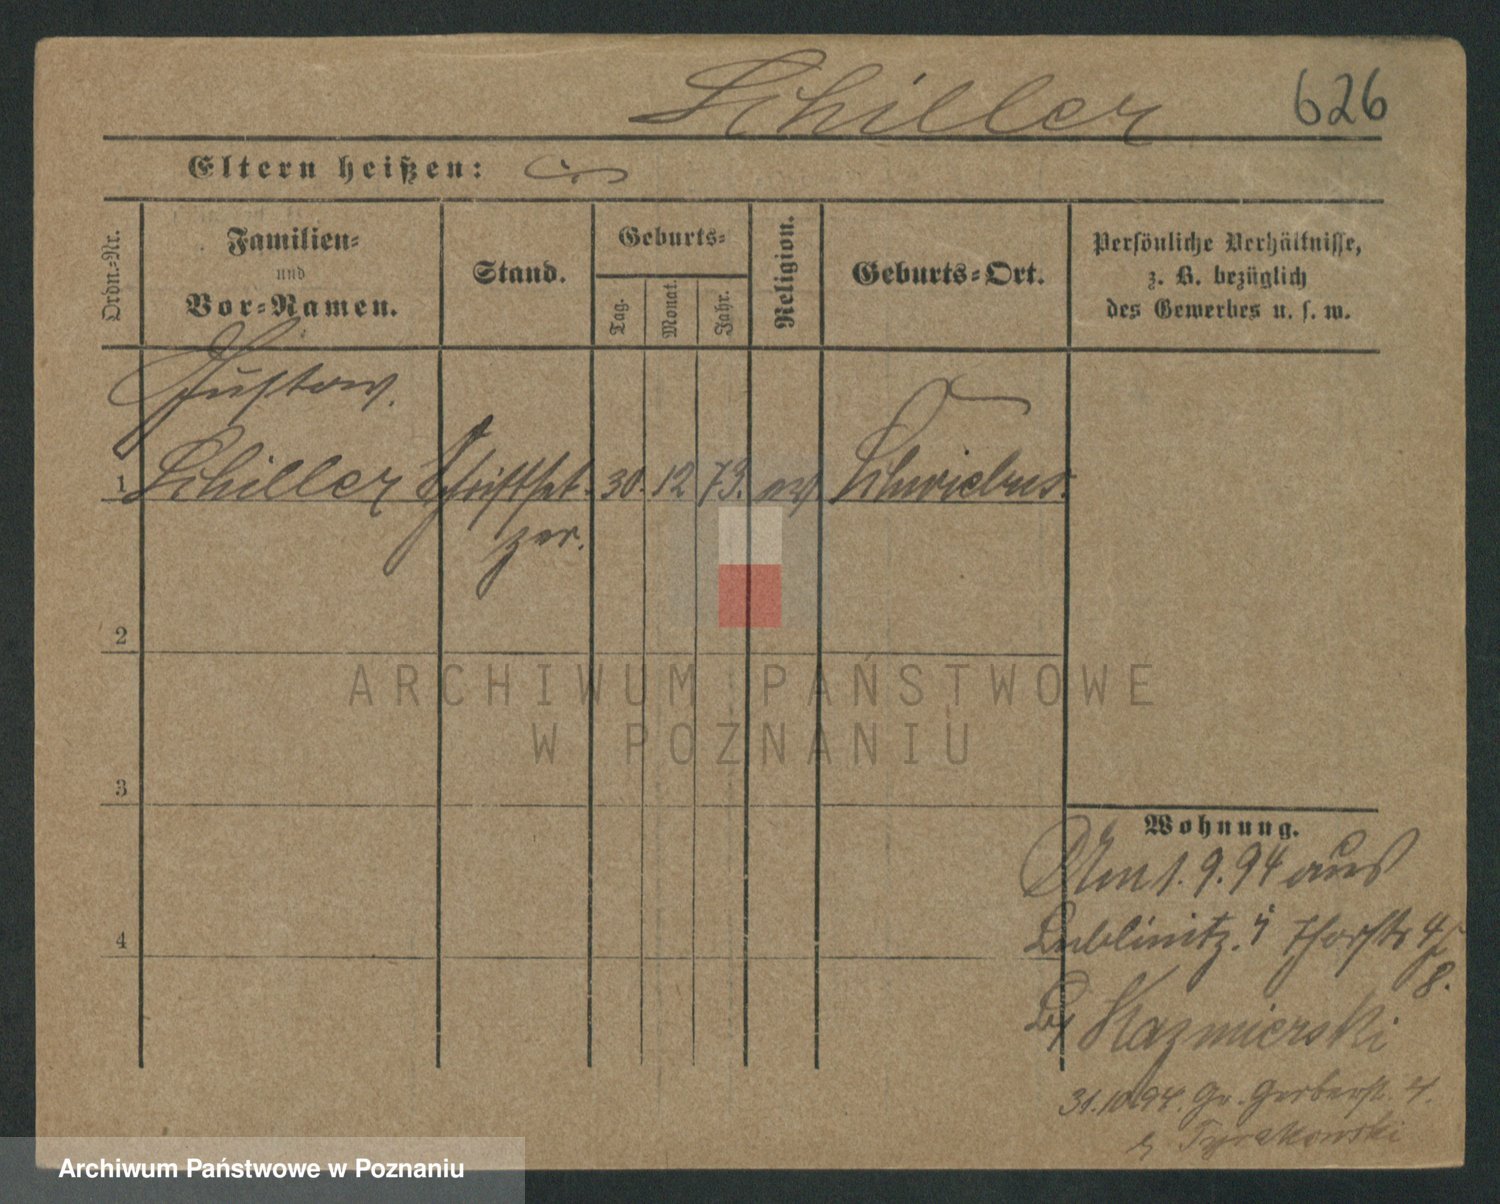 Schiller 626
Eltern heißen:
Ordn.-Nr.
Familien-
und
Vor-Namen.
Stand.
Geburts-
Tag.
Monat.
Jahr.
Religion.
Geburts-Ort.
Persönliche Verhältnisse,
z. B. bezüglich
des Gewerbes u. s. w.
Gustav.
1 Schiller Schriftset- 30. 12 73. ev. Schwiebus.
zer.
2
3
4
Wohnung.
Am 1. 9. 94 aus
Lublinitz.
Kazmierski
31.10.94. Gr. Gerberst. 4.
Tyrakowski
ARCHIWUM PAŃSTWOWE
W POZNANIU
Archiwum Państwowe w Poznaniu